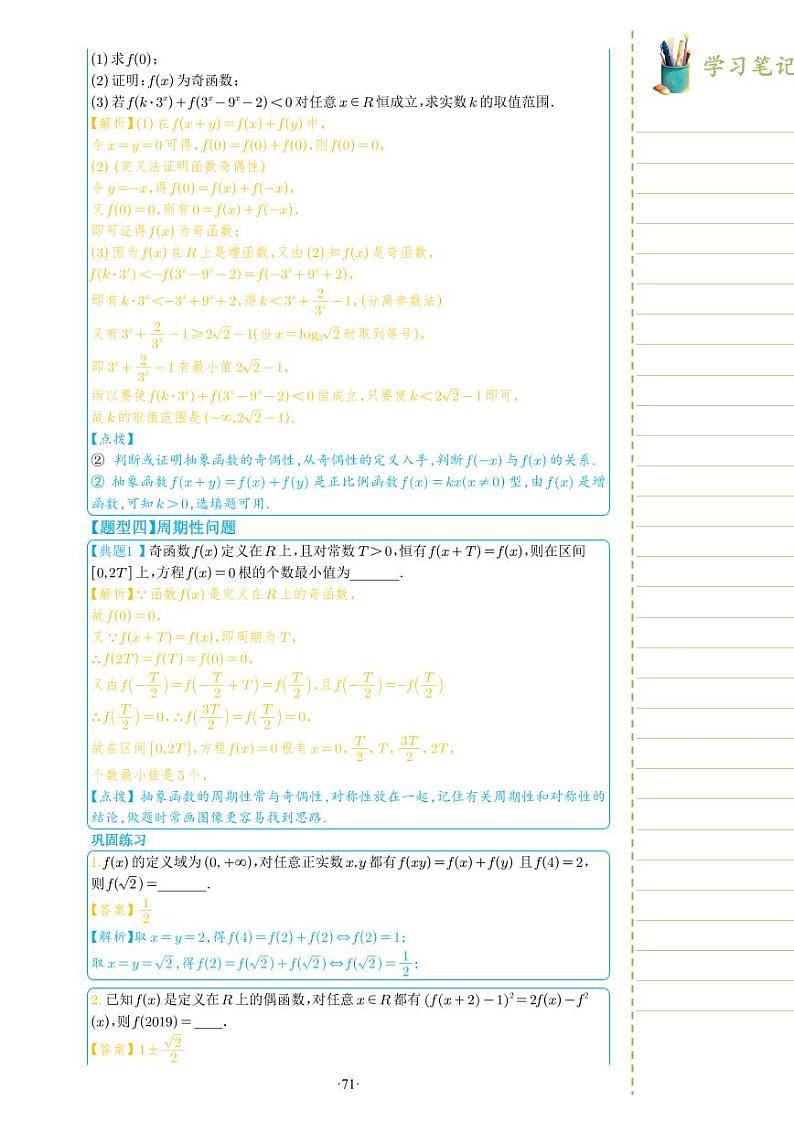 学习笔记
(1) 求 f(0);
(2) 证明: f(x) 为奇函数;
(3) 若 f(k·3ˣ)+f(3ˣ−9ˣ−2)<0 对任意 x∈R 恒成立,求实数 k 的取值范围.
【解析】(1) 在 f(x+y)=f(x)+f(y) 中,
令 x=y=0 可得, f(0)=f(0)+f(0), 则 f(0)=0,
(2) (定义法证明函数奇偶性)
令 y=−x, 得 f(0)=f(x)+f(−x),
又 f(0)=0, 则有 0=f(x)+f(−x),
即可证得 f(x) 为奇函数;
(3) 因为 f(x) 在 R 上是增函数, 又由 (2) 知 f(x) 是奇函数,
f(k·3ˣ)<−f(3ˣ−9ˣ−2)=f(−3ˣ+9ˣ+2),
即有 k·3ˣ<−3ˣ+9ˣ+2, 得 k<3ˣ+2/3ˣ−1, (分离参数法)
又有 3ˣ+2/3ˣ−1⩾2√2−1(当 x=log₃√2 时取到等号),
即 3ˣ+2/3ˣ−1 有最小值 2√2−1,
所以要使 f(k·3ˣ)+f(3ˣ−9ˣ−2)<0 恒成立, 只要使 k<2√2−1 即可,
故 k 的取值范围是 (−∞,2√2−1).
【点拨】
② 判断或证明抽象函数的奇偶性, 从奇偶性的定义入手, 判断 f(−x) 与 f(x) 的关系.
② 抽象函数 f(x+y)=f(x)+f(y) 是正比例函数 f(x)=kx(x≠0) 型, 由 f(x) 是增
函数, 可知 k>0, 选填题可用.
【题型四】周期性问题
【典题1 】奇函数 f(x) 定义在 R 上, 且对常数 T>0, 恒有 f(x+T)=f(x), 则在区间
[0,2T] 上, 方程 f(x)=0 根的个数最小值为______.
【解析】∵ 函数 f(x) 是定义在 R 上的奇函数,
故 f(0)=0,
又 ∵ f(x+T)=f(x), 即周期为 T,
∴ f(2T)=f(T)=f(0)=0,
又由 f(−T/2)=f(−T/2+T)=f(T/2), 且 f(−T/2)=−f(T/2)
∴ f(T/2)=0, ∴ f(3T/2)=f(T/2)=0,
故在区间 [0,2T], 方程 f(x)=0 根有 x=0, T/2, T, 3T/2, 2T,
个数最小值是 5 个,
【点拨】抽象函数的周期性常与奇偶性, 对称性放在一起, 记住有关周期性和对称性的
结论, 做题时常画图像更容易找到思路.
巩固练习
1. f(x) 的定义域为 (0, +∞), 对任意正实数 x,y 都有 f(xy)=f(x)+f(y) 且 f(4)=2,
则 f(√2)=______.
【答案】1/2
【解析】取 x=y=2, 得 f(4)=f(2)+f(2)⇔f(2)=1;
取 x=y=√2, 得 f(2)=f(√2)+f(√2)⇔f(√2)=1/2;
2. 已知 f(x) 是定义在 R 上的偶函数, 对任意 x∈R 都有 (f(x+2)−1)²=2f(x)−f²
(x), 则 f(2019)=____.
【答案】1±√2/2
·71·